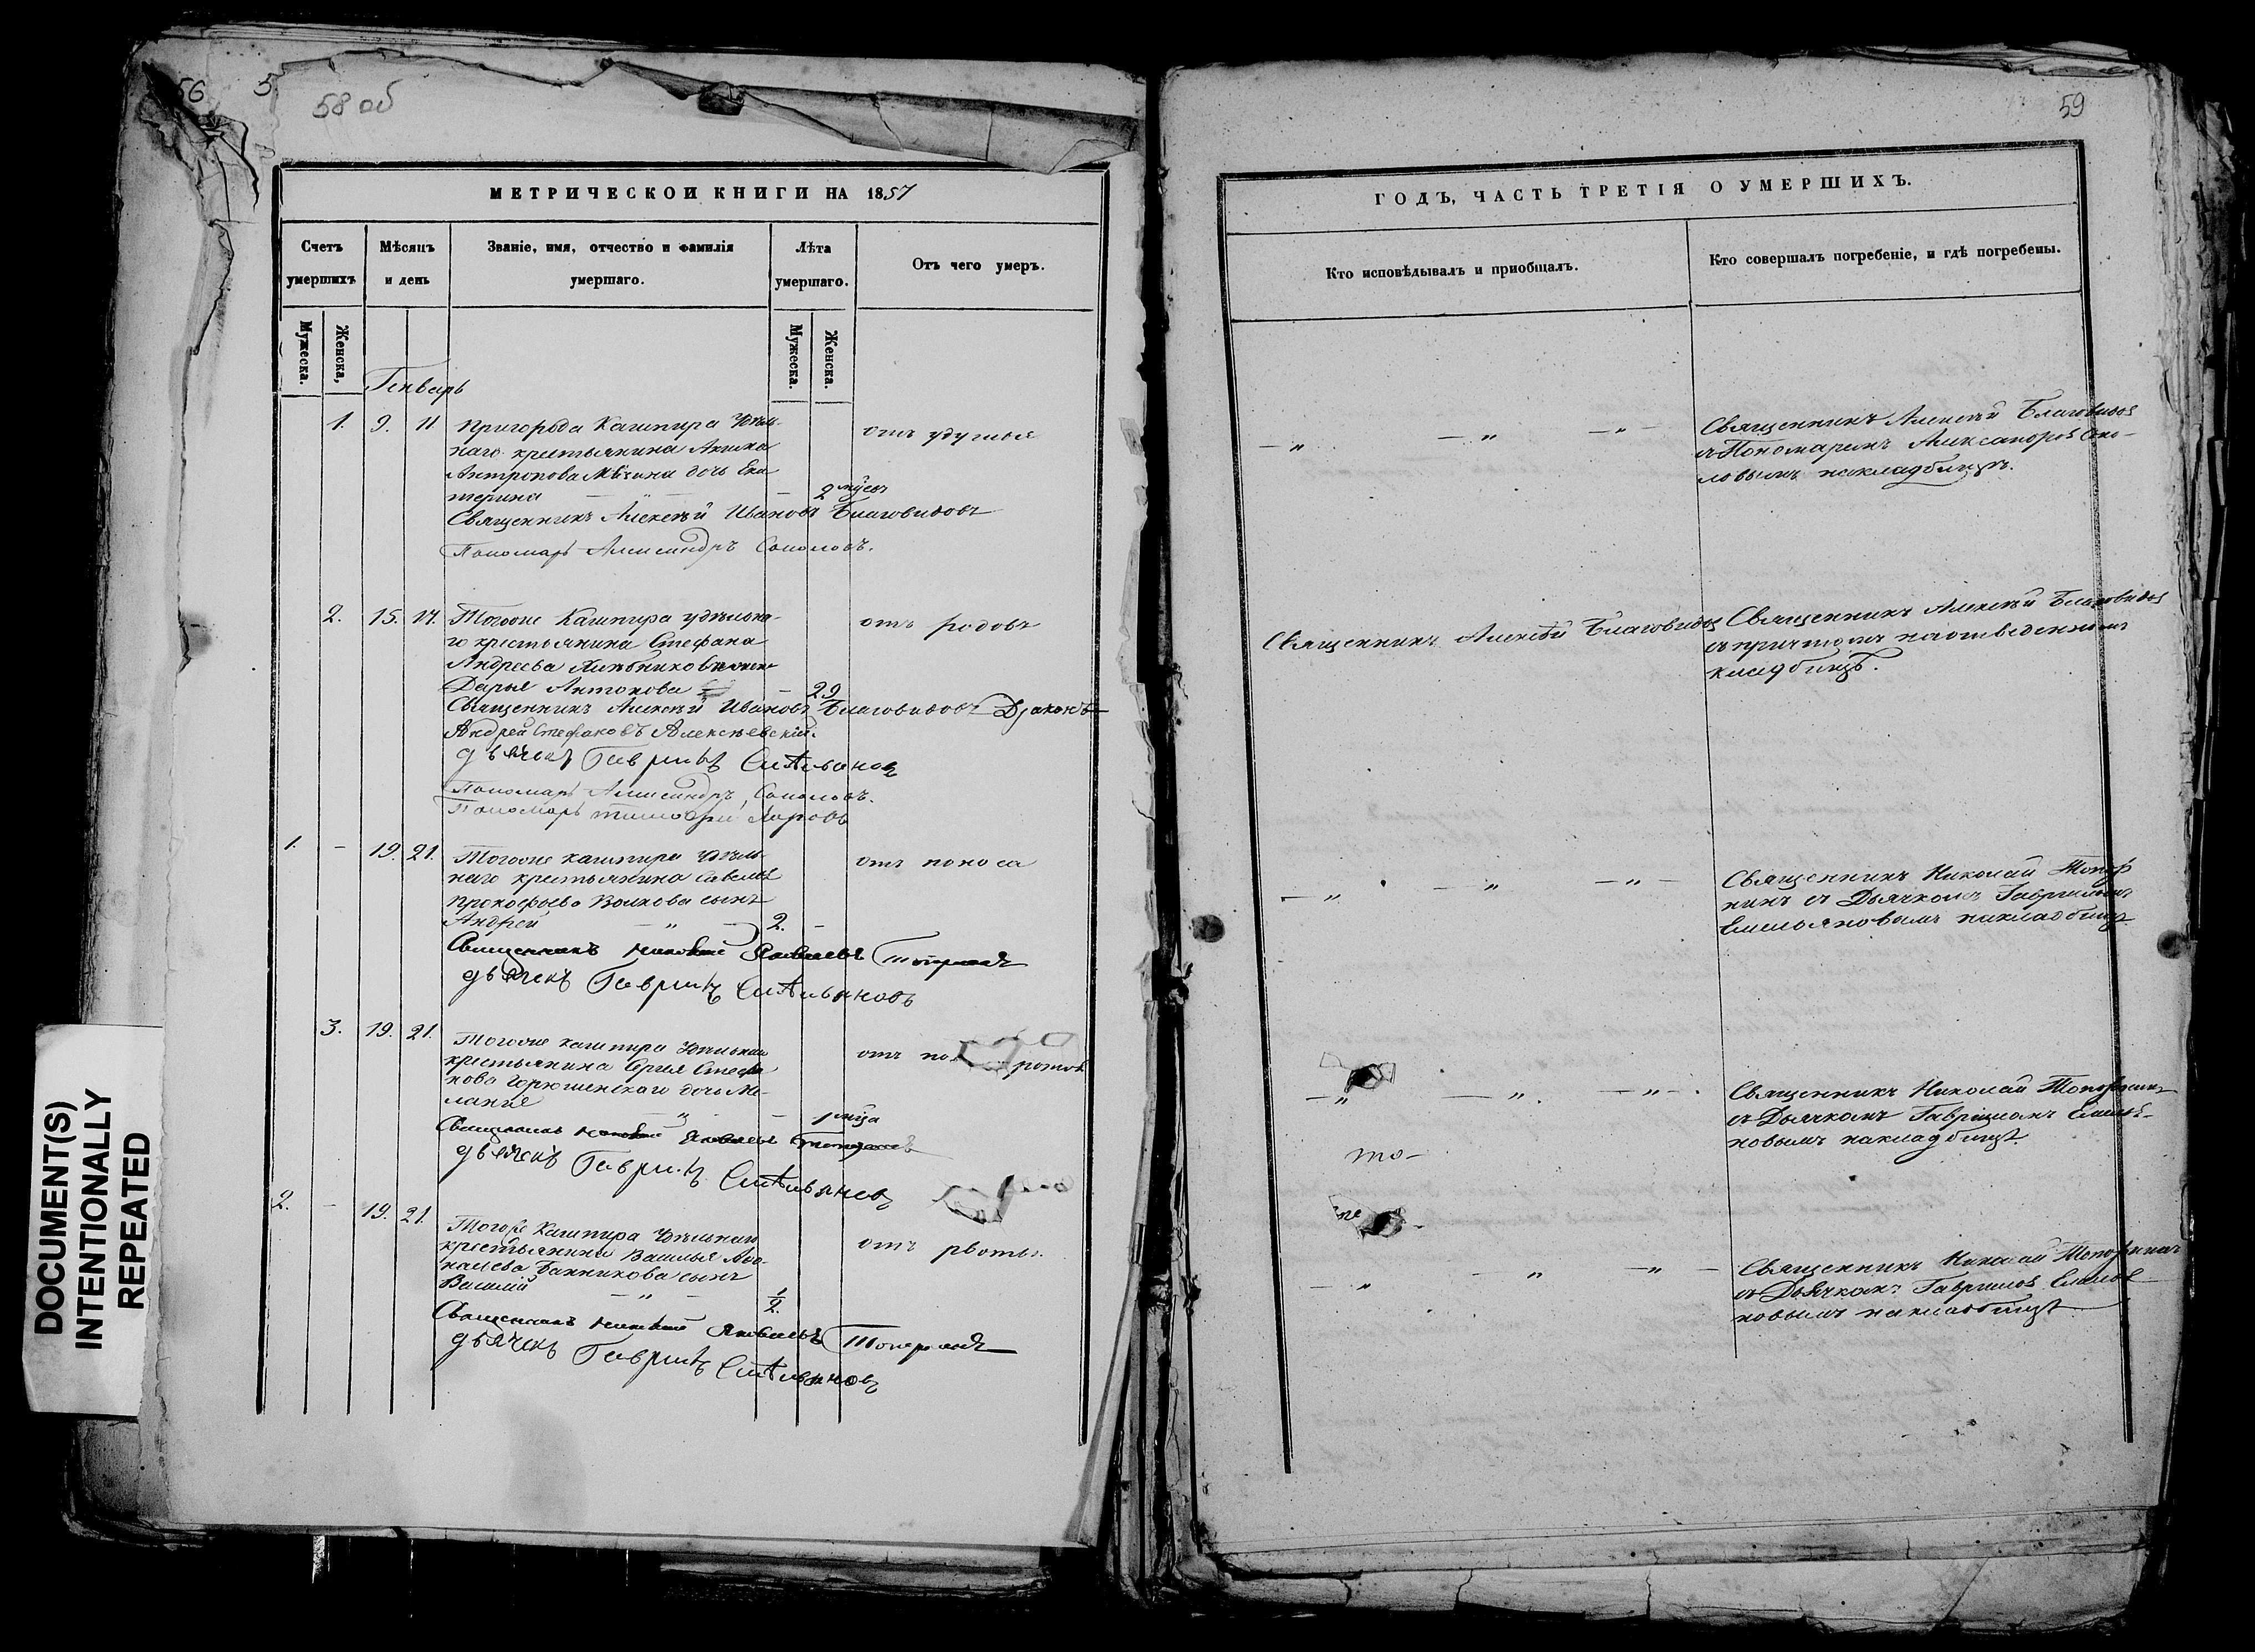 56
5
58 об
МЕТРИЧЕСКОЙ КНИГИ НА 1857
Счетъ умершихъ
Мѣсяцъ и день
Званіе, имя, отчество и фамилія умершаго.
Лѣта умершаго.
Отъ чего умеръ.
Мужеска.
Женска,
Мужеска.
Женска.
Генварь
1. 9. 11 Пригорода Кашпира Удѣль-
наго крестьянина
Антропова дочь Ека
терина 2 мцсъ
отъ удушья
Священникъ Алексѣй Ивановъ Благовидовъ
Пономарь Александръ Соколовъ.
2. 15. 17. Тогоже Кашпира удѣльна-
го крестьянина Стефана
Андреева жена
Дарья Антонова 29
отъ родовъ
Священникъ Алексѣй Ивановъ Благовидовъ Діаконъ
Андрей Стефановъ Алексѣевскій.
дьячекъ Гаврилъ Емельяновъ
Пономарь Александръ Соколовъ.
Пономарь
1. - 19. 21. Тогоже Кашпира Удѣль-
наго крестьянина Савелья
Прокофьева Волкова сынъ
Андрей 2.
отъ поноса
Священникъ Николай Яковлевъ Топорнинъ
дьячекъ Гаврилъ Емельяновъ
3. 19. 21. Тогоже Кашпира Удѣльнаго
крестьянина Сергея Стефа
нова Горюшинскаго дочь Ме-
ланія 1 мцa
отъ
Священникъ Николай Яковлевъ Топорнинъ
дьячекъ Гаврилъ Емельяновъ
2. - 19. 21. Тогоже Кашпира Удѣльнаго
крестьянина Василья Афа-
насьева Банникова сынъ
Василій 1/2.
отъ рвоты.
Священникъ Николай Яковлевъ Топорнинъ
дьячекъ Гаврилъ Емельяновъ
59
ГОДЪ, ЧАСТЬ ТРЕТІЯ О УМЕРШИХЪ.
Кто исповѣдывалъ и приобщалъ.
Кто совершалъ погребеніе, и гдѣ погребены.
Священникъ Алексѣй Благовидов
съ Пономаремъ Александров Соко-
ловымъ накладбищѣ.
Священникъ Алексѣй Благовидов
Священникъ Алексѣй Благовидов
съ причтомъ наотведенномъ
кладбищѣ.
Священникъ Николай Топор
нинъ съ Дьячкомъ Гавриломъ
Емельяновымъ накладбищѣ
Священникъ Николай Топорнинъ
съ Дьячкомъ Гавриломъ Емелья-
новымъ накладбищѣ
то-
Священникъ Николай Топорнинъ
съ Дьячкомъ Гавриломъ Емелья
новымъ накладбищѣ
DOCUMENT(S)
INTENTIONALLY
REPEATED